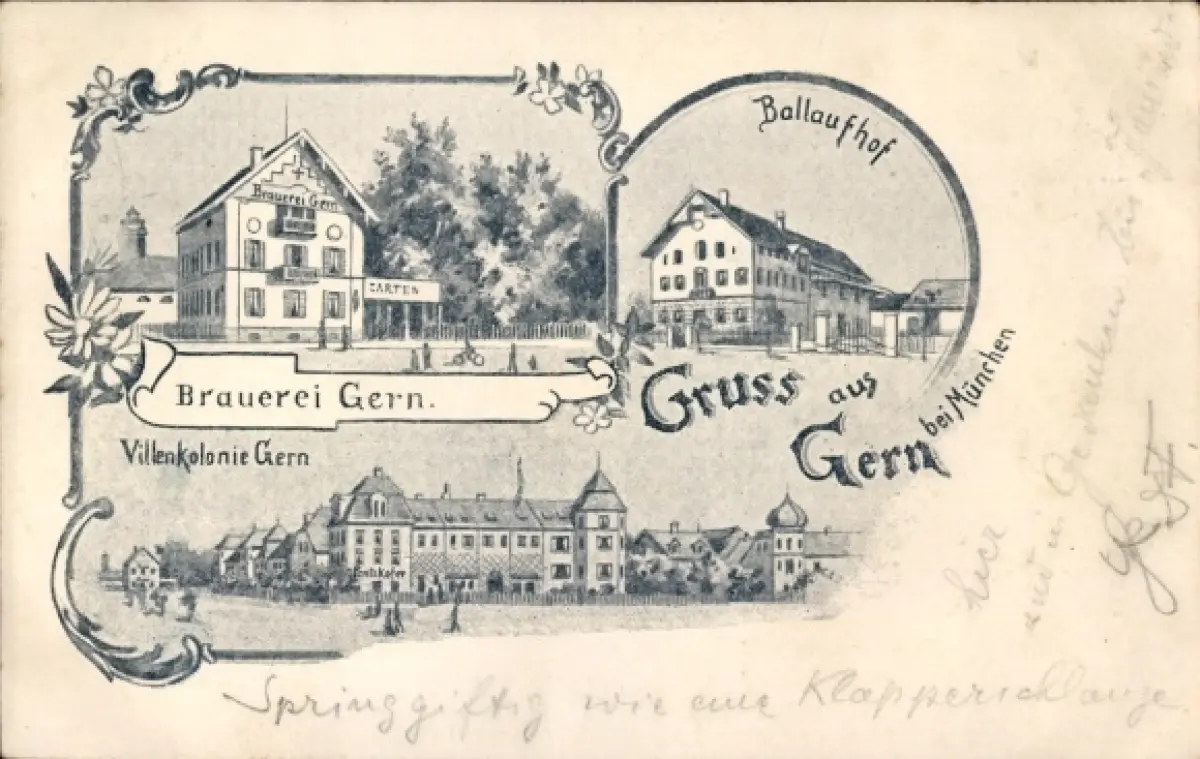 Ballaufhof
Brauerei Gern.
GARTEN
Brauerei Gern.
Gruss aus
Gern bei München
Villenkolonie Gern
Springgiftig wie eine Klapperschlange
hier